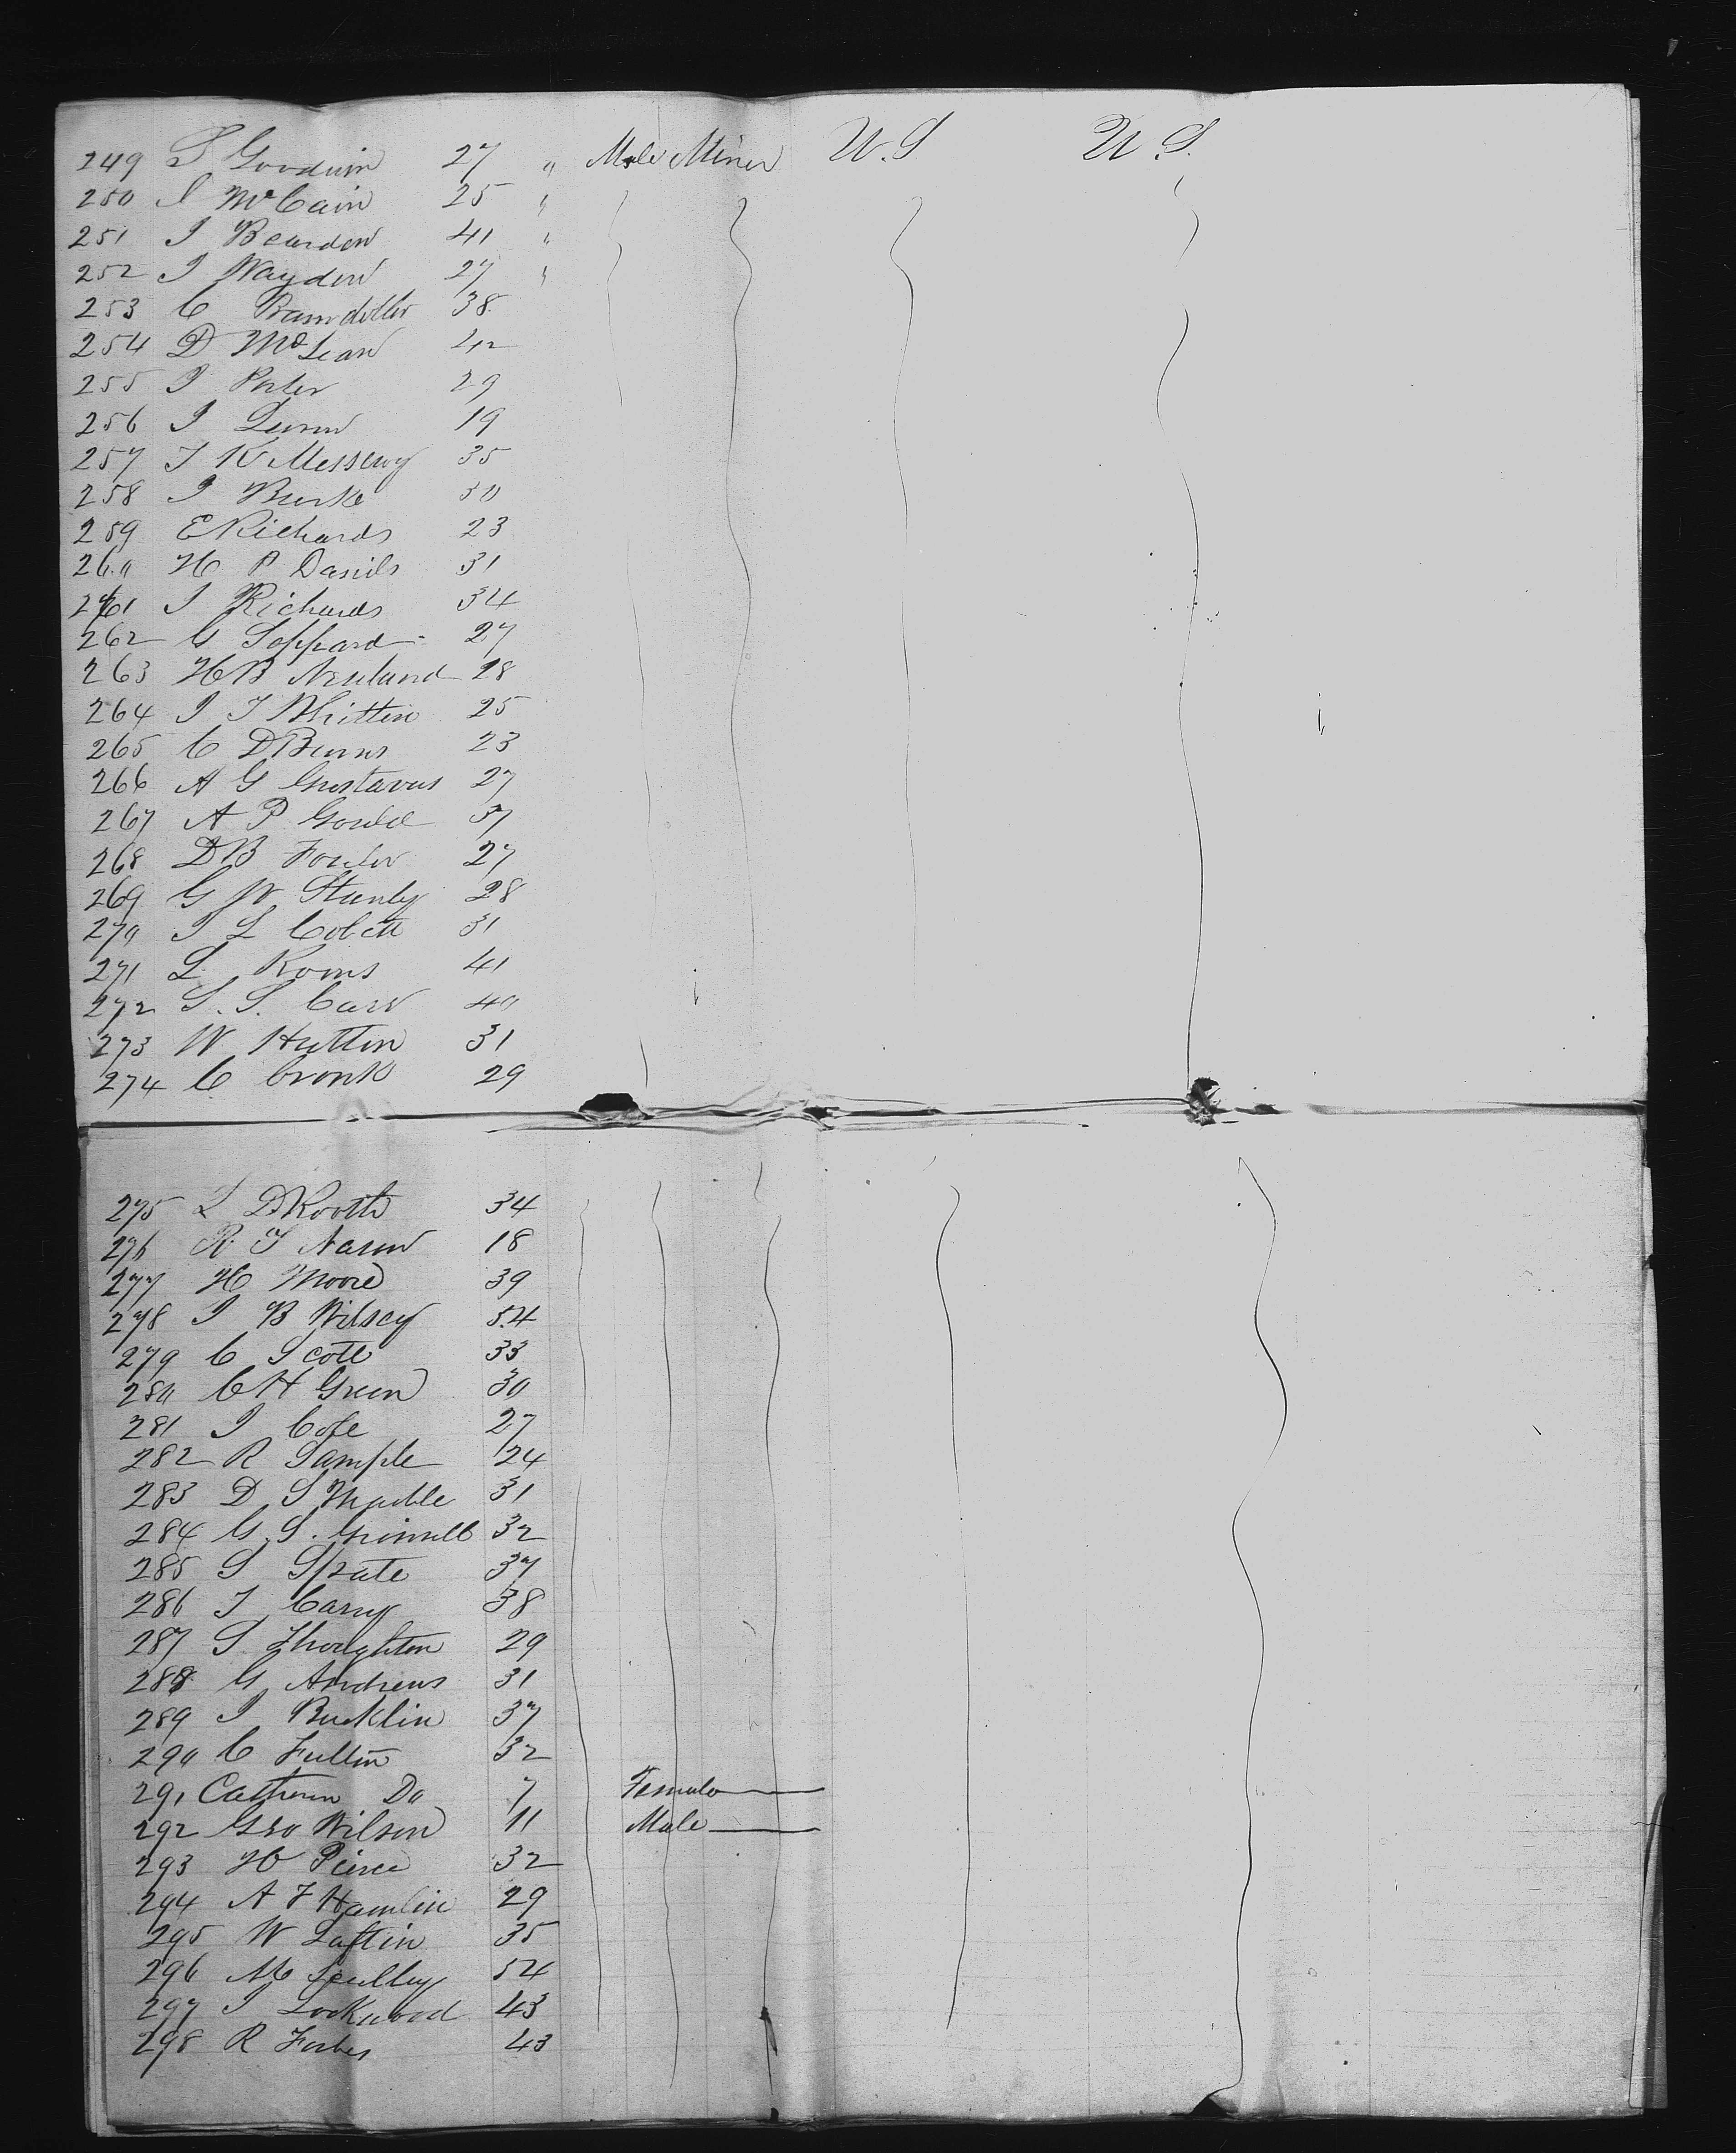 249 S Goodwin 27 " Male Miner U.S U.S.
250 I McCain 25 "
251 I Bearden 41 "
252 I Hayden 27 "
253 C 38
254 D McLean 42
255 I Porter 29
256 I 19
257 J K Messervy 35
258 I Burke 30
259 E Richards 23
260 H P Daniels 31
261 I Richards 34
262 G Soppard 27
263 H B 28
264 I T Whitten 25
265 C D Burns 23
266 A G Gustavus 27
267 A P Gould 37
268 D B Fowler 27
269 G W Stanly 28
270 I L Cobett 31
271 L Roms 41
272 S. S. Carr 40
273 W Hutton 31
274 C Cronk 29
275 L D Rooth 34
276 R T Nason 18
277 H Moore 39
278 I B Wilsey 54
279 C Scott 33
280 C H Green 30
281 I Cole 27
282 R Sample 24
283 D S 31
284 G. S. Grinnell 32
285 S Spate 37
286 T Carry 38
287 S Thoughton 29
288 G Andrews 31
289 I Bucklin 37
290 C Fulton 32
291 Cathern Do 7 Female
292 Geo Wilson 11 Male
293 H Pierce 32
294 A F Hamlin 29
295 W Laftin 35
296 M Sculley 54
297 I Lockwood 43
298 R Forbes 43